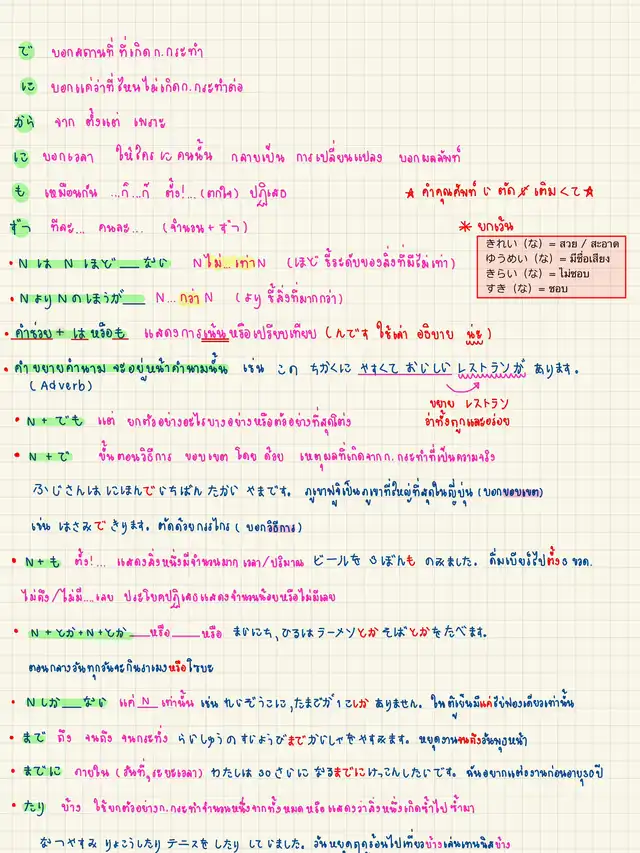 で บอกสถานที่ ที่เกิดก.กระทำ
に บอกแค่ว่าที่ไหนไม่เกิดก.กระทำต่อ
から จาก ตั้งแต่ เพราะ
に บอกเวลา ให้ใคร に คนนั้น กลายเป็น การเปลี่ยนแปลง บอกผลลัพท์
も เหมือนกัน ...ก็ ...ก็ ตั้ง!...(ตกใจ) ปฏิเสธ
★ คำคุณศัพท์ い ตัด い เติม くて ★
ずつ ทีละ... คนละ... (จำนวน + ずつ)
* ยกเว้น
きれい（な）= สวย / สะอาด
ゆうめい（な）= มีชื่อเสียง
きらい（な）= ไม่ชอบ
すき（な）= ชอบ
• N は N ほど __ ない N ไม่...เท่า N (ほど ชี้ระดับของสิ่งที่มีไม่เท่า)
• N より N のほうが__ N...กว่า N (より ชี้สิ่งที่มากกว่า)
• คำช่วย + は หรือ も แสดงการเน้นหรือเปรียบเทียบ (んです ใช้เล่า อธิบาย น่ะ)
• คำขยายคำนาม จะอยู่หน้าคำนามนั้น เช่น この ちかくに やすくて おいしい レストランが あります.
(Adverb)
ขยาย レストラン
ว่าทั้งถูกและอร่อย
• N + でも แต่ ยกตัวอย่างอะไรบางอย่างหรือตัวอย่างที่สุดโต่ง
• N + で ขั้นตอนวิธีการ ขอบเขต โดย ด้วย เหตุผลที่เกิดจากก.กระทำที่เป็นความจริง
ふじさんは にほんで いちばん たかい やまです. ภูเขาฟูจิเป็นภูเขาที่ใหญ่ที่สุดในญี่ปุ่น (บอกขอบเขต)
เช่น はさみで きります. ตัดด้วยกรรไกร (บอกวิธีการ)
• N + も ตั้ง!... แสดงสิ่งหนึ่งมีจำนวนมาก เวลา/ปริมาณ ビールを 8 ぼんも のみました. ดื่มเบียร์ไปตั้ง 8 ขวด.
ไม่ถึง/ไม่มี....เลย ประโยคปฏิเสธแสดงจำนวนน้อยหรือไม่มีเลย
• N + とか + N + とか __หรือ__ หรือ まいにち, ひるは ラーメンとか そばとかを たべます.
ตอนกลางวันทุกวันจะกินราเมงหรือโซบะ
• N しか__ない แค่ N เท่านั้น เช่น れいぞうこに, たまごが 1 こしか ありません. ในตู้เย็นมีแค่ไข่ฟองเดียวเท่านั้น
• まで ถึง จนถึง จนกระทั่ง らいしゅうの すいようびまで かいしゃを やすみます. หยุดงานจนถึงวันพุธหน้า
• までに ภายใน (วันที่,ระยะเวลา) わたしは 30 さいに なるまでに けっこんしたいです. ฉันอยากแต่งงานก่อนอายุ30ปี
• たり บ้าง ใช้ยกตัวอย่างก.กระทำจำนวนหนึ่งจากทั้งหมด หรือ แสดงว่าสิ่งหนึ่งเกิดซ้ำไปซ้ำมา
なつやすみ りょこうしたり テニスを したり していました. วันหยุดฤดูร้อนไปเที่ยวบ้างเล่นเทนนิสบ้าง